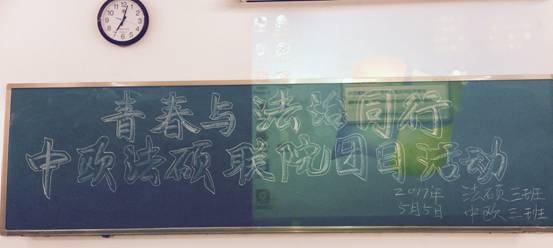 青春与法治同行
中欧法硕联院团日活动
2017年 法硕三班
5月5日 中欧三班